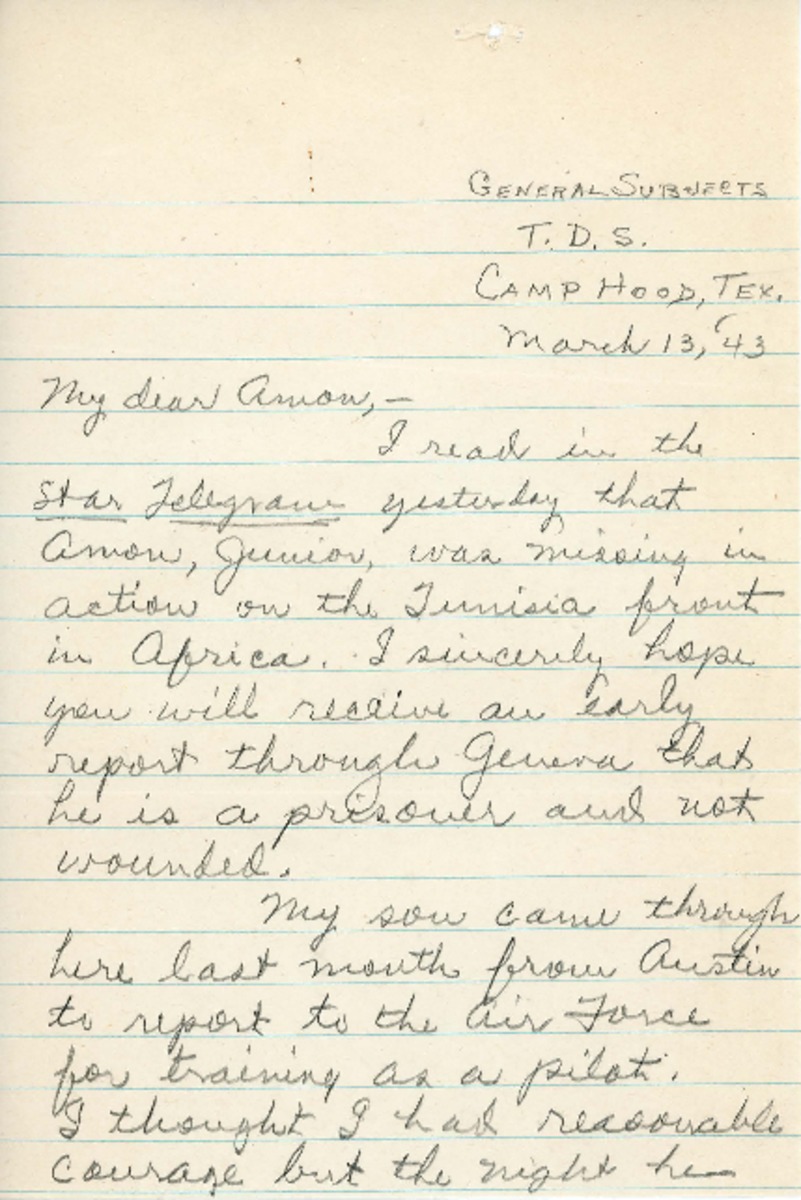 GENERAL SUBJECTS
T. D. S.
CAMP HOOD, TEX.
March 13, '43
My dear Amon,—
I read in the
Star Telegram yesterday that
Amon, Junior, was missing in
action on the Tunisia front
in Africa. I sincerely hope
you will receive an early
report through Geneva that
he is a prisoner and not
wounded.
My son came through
here last month from Austin
to report to the Air Force
for training as a pilot.
I thought I had reasonable
courage but the night he